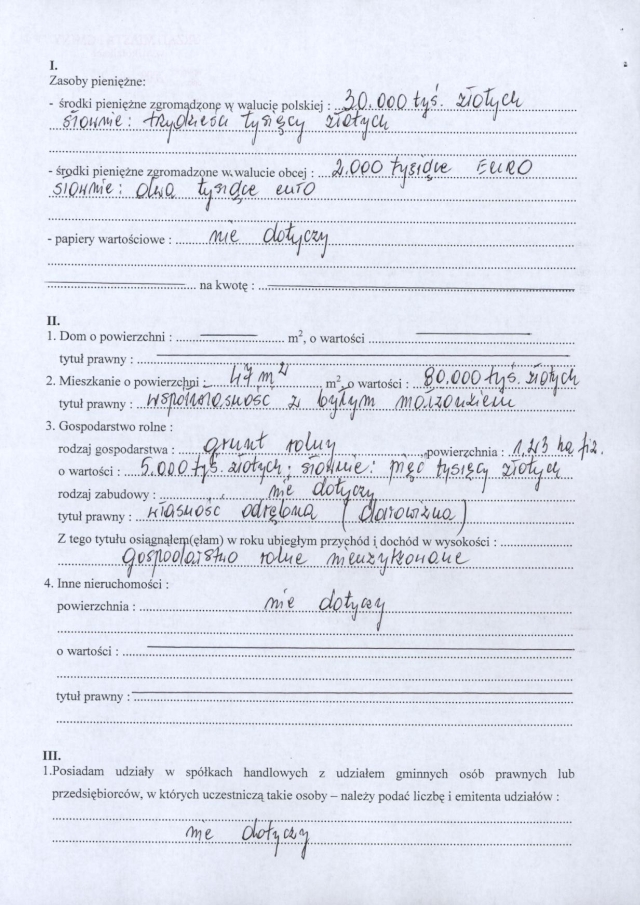 I.
Zasoby pieniężne:
- środki pieniężne zgromadzone w walucie polskiej : 30.000 tyś. złotych
słownie : trzydzieści tysięcy złotych
- środki pieniężne zgromadzone w walucie obcej : 2.000 tysiące EURO
słownie : dwa tysiące euro
- papiery wartościowe : nie dotyczy
na kwotę :
II.
1. Dom o powierzchni : m², o wartości
tytuł prawny :
2. Mieszkanie o powierzchni : 47 m² m², o wartości : 80.000 tyś. złotych
tytuł prawny : współwłasność z byłym małżonkiem
3. Gospodarstwo rolne :
rodzaj gospodarstwa : grunt rolny powierzchnia : 1,23 ha fiz.
o wartości : 5.000 tyś. złotych ; słownie : pięć tysięcy złotych
rodzaj zabudowy : nie dotyczy
tytuł prawny : własność odrębna ( darowizna )
Z tego tytułu osiągnąłem(ęłam) w roku ubiegłym przychód i dochód w wysokości :
gospodarstwo rolne nieużytkowane
4. Inne nieruchomości :
powierzchnia : nie dotyczy
o wartości :
tytuł prawny :
III.
1.Posiadam udziały w spółkach handlowych z udziałem gminnych osób prawnych lub
przedsiębiorców, w których uczestniczą takie osoby – należy podać liczbę i emitenta udziałów :
nie dotyczy